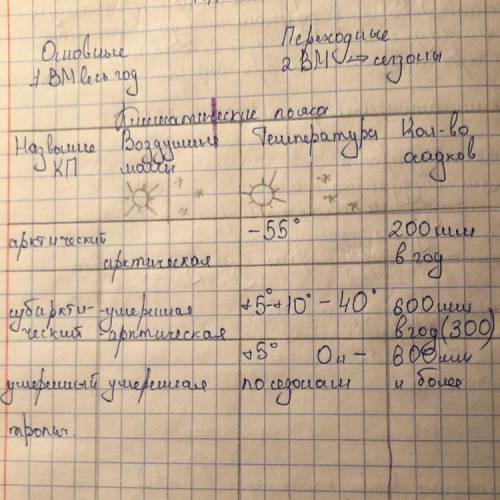 Основные
1 ВМ весь год
Переходные
2 ВМ → сезоны
Климатические пояса
Название КП
Воздушные массы
Температура
Кол-во осадков
арктический
арктическая
-55°
200 мм
в год
субаркти-
ческий
-умеренная
-арктическая
+5°+10° -40°
600 мм
в год (300)
умеренный
умеренная
+5°
по сезонам
600 мм
и более
тропич.